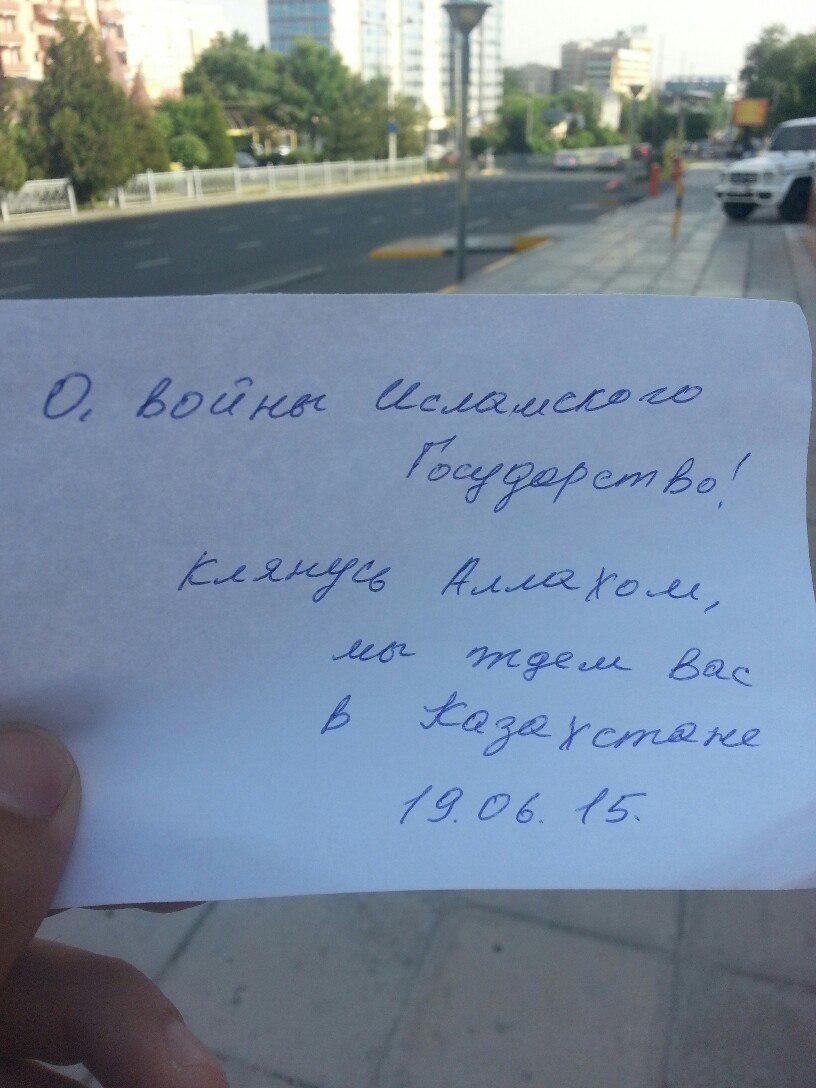 О, войны Исламского
Государство!
Клянусь Аллахом,
мы ждем вас
в Казахстане
19.06.15.